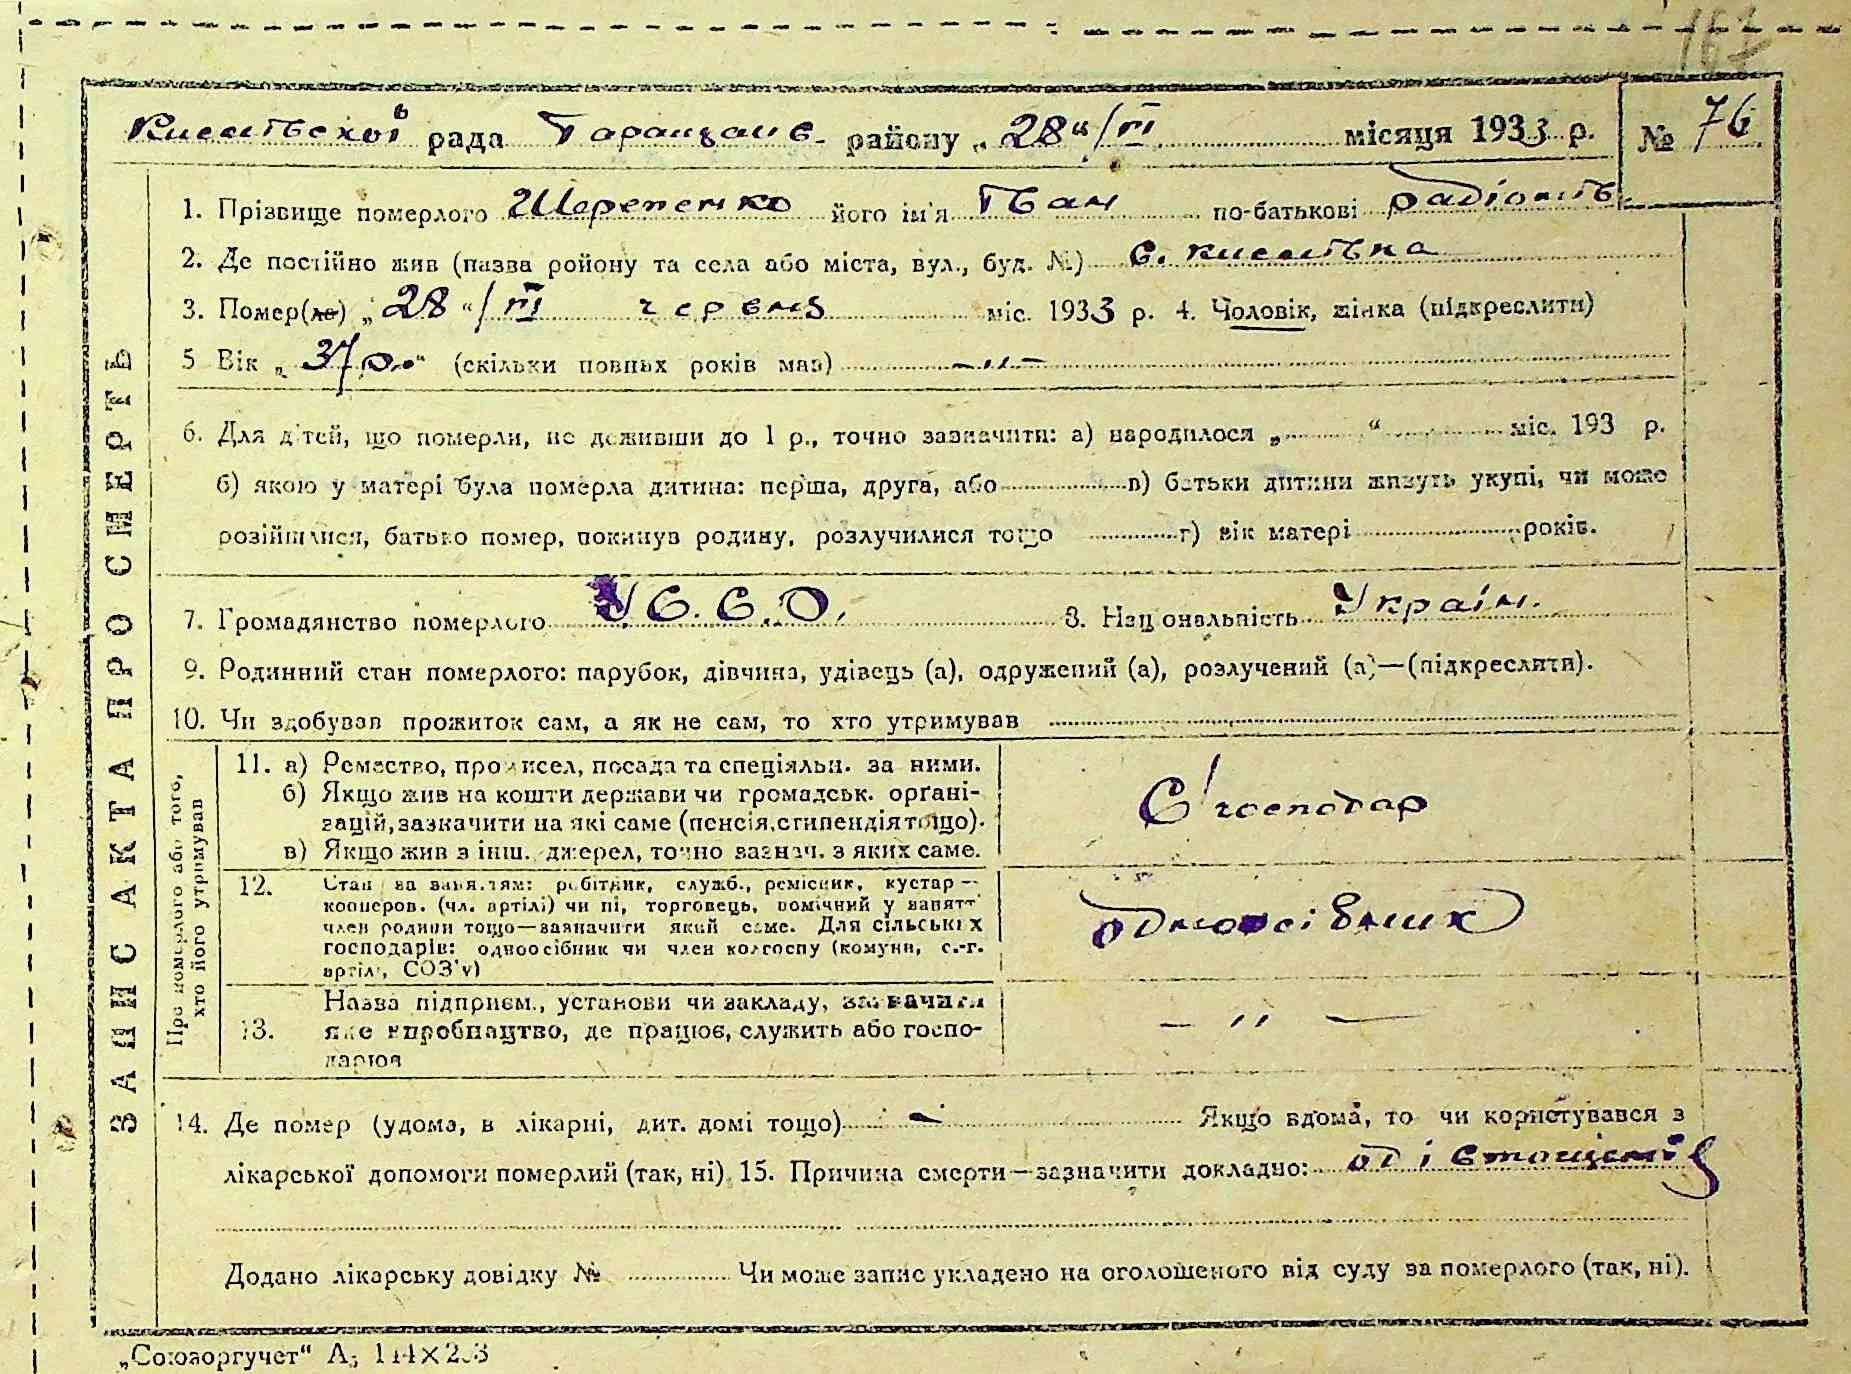 162
Киселівської рада Таращанс. району „28“/VI місяця 1933 р. № 76
1. Прізвище померлого Шерепенко його ім'я Іван по-батькові Радіонів.
2. Де постійно жив (назва ройону та села або міста, вул., буд. №) с. Киселівка
3. Помер(ла) „28“/VI червня міс. 1933 р. 4. Чоловік, жінка (підкреслити)
5 Вік „37 р.“ (скільки повних років мав) —„—
6. Для дітей, що померли, не доживши до 1 р., точно зазначити: а) народилося „ “ міс. 193 р.
б) якою у матері була померла дитина: перша, друга, або в) батьки дитини живуть укупі, чи може
розійшлися, батько помер, покинув родину, розлучилися тощо г) вік матері років.
7. Громадянство померлого У.С.С.Р. 8. Національність Україн.
9. Родинний стан померлого: парубок, дівчина, удівець (а), одружений (а), розлучений (а)—(підкреслити).
10. Чи здобував прожиток сам, а як не сам, то хто утримував
ЗАПИС АКТА ПРО СМЕРТЬ
Про померлого або того, хто його утримував
11. а) Ремество, промисел, посада та спеціяльн. за ними.
б) Якщо жив на кошти держави чи громадськ. органі-
зацій, зазначити на які саме (пенсія, стипендія тощо).
в) Якщо жив з інш. джерел, точно зазнач. з яких саме.
С/господар
12. Стан за заняттям: робітник, служб., ремісник, кустар—
кооперов. (чл. артілі) чи ні, торговець, помічний у занятті
член родини тощо—зазначити який саме. Для сільських
господарів: одноосібник чи член колгоспу (комуни, с.-г.
артілі, СОЗ'у)
одноосібник
13. Назва підприєм., установи чи закладу, зазначити
яке виробництво, де працює, служить або госпо-
дарює
— „ —
14. Де помер (удома, в лікарні, дит. домі тощо) — Якщо вдома, то чи користувався з
лікарської допомоги померлий (так, ні). 15. Причина смерти—зазначити докладно: од істощенія
Додано лікарську довідку № Чи може запис укладено на оголошеного від суду за померлого (так, ні).
„Союзоргучет“ А5